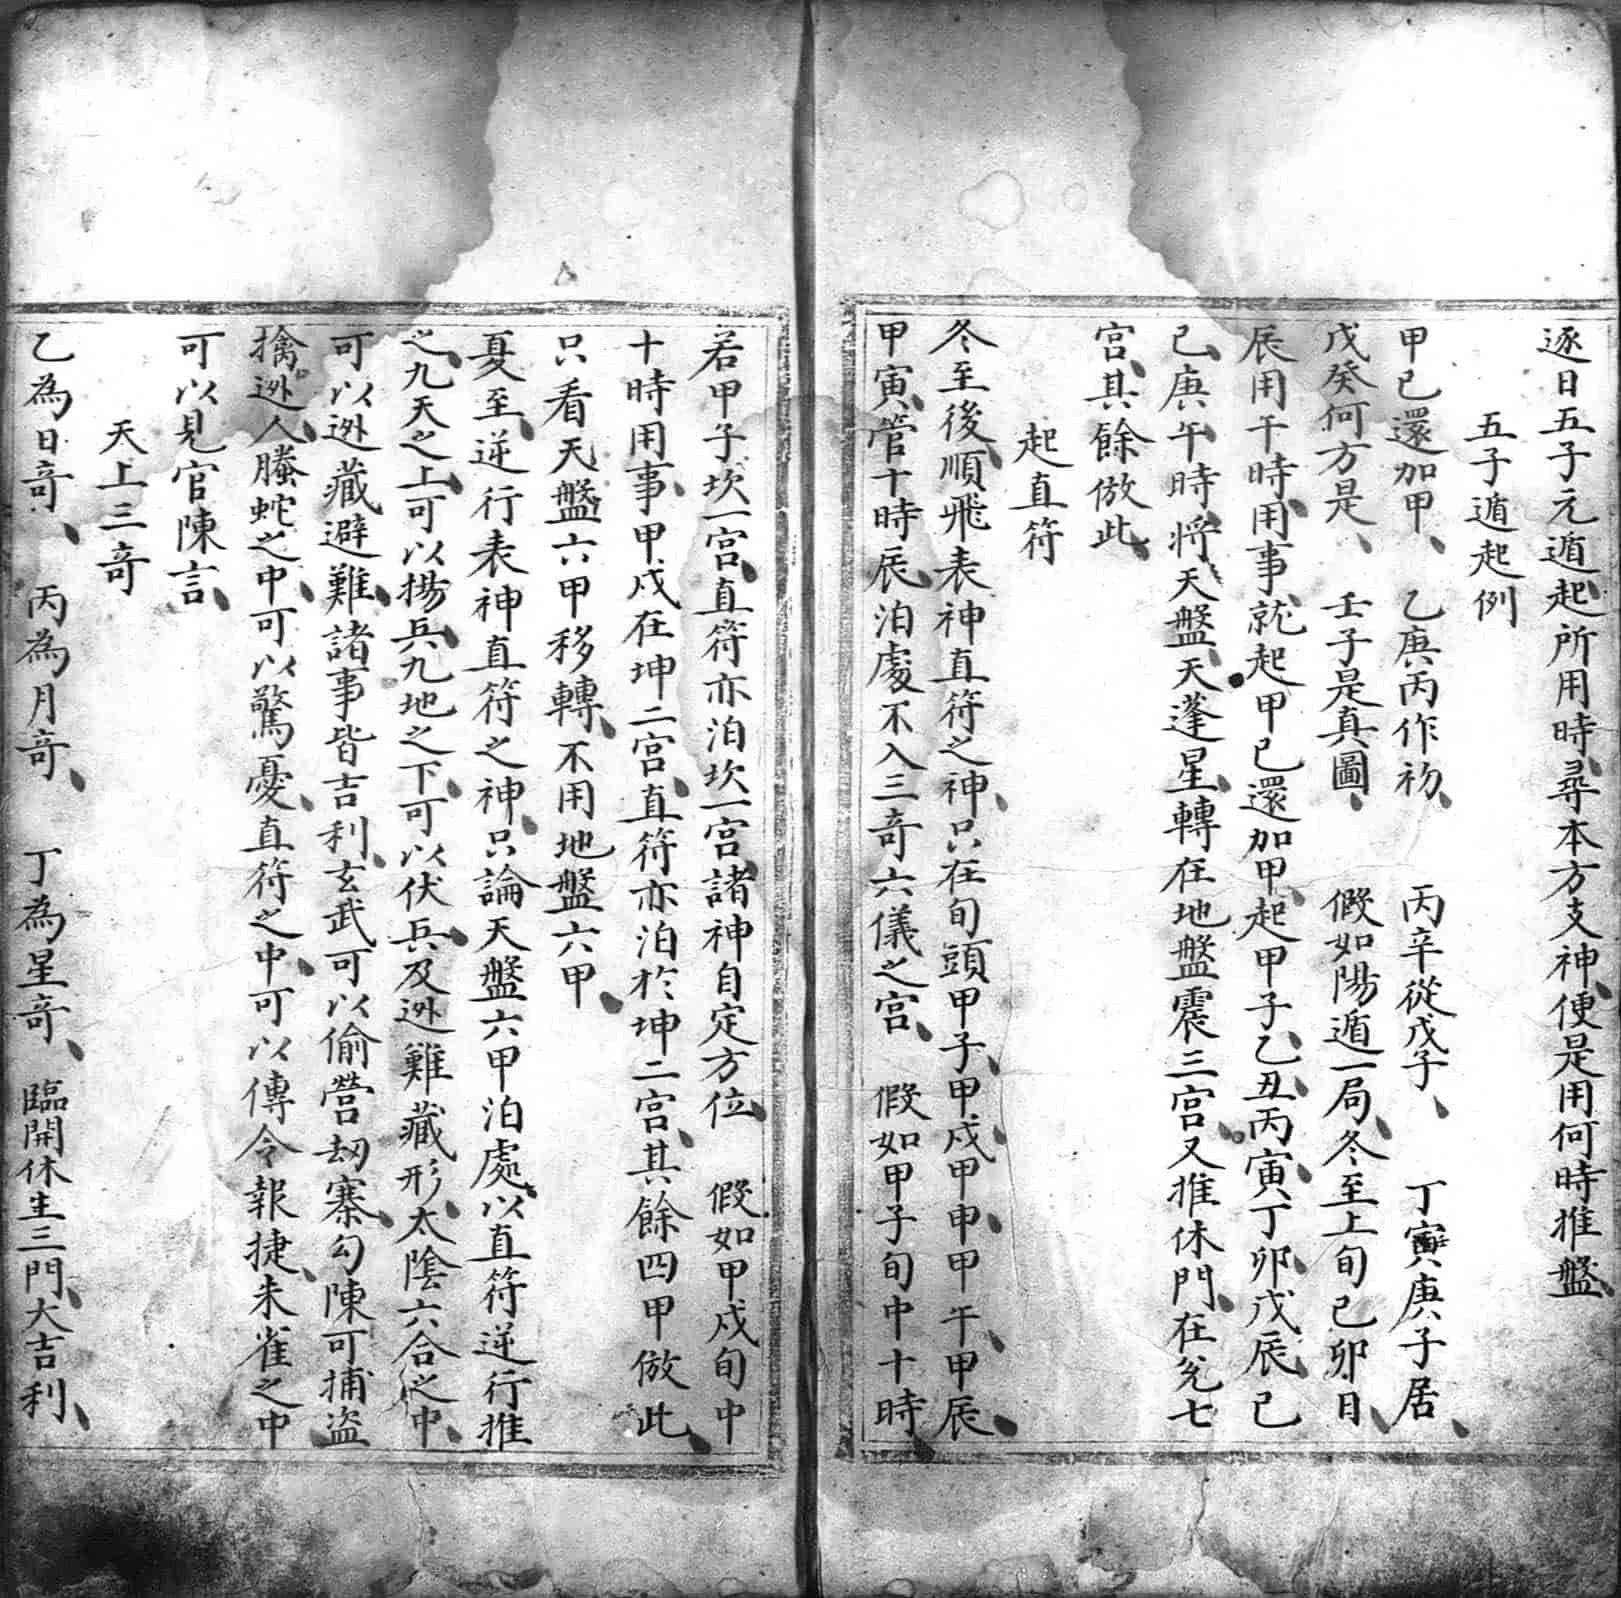 逐日五子元遁起所用時尋本方支神便是用何時推盤
五子遁起例
甲己還加甲、　乙庚丙作初、　丙辛從戊子、　丁寅庚子居、
戊癸何方是、　壬子是真圖、　假如陽遁一局、冬至上旬己卯日、
辰用午時用事、就起甲己還加甲、起甲子、乙丑、丙寅、丁卯、戊辰、己
巳、庚午時、將天盤、天蓬星、轉在地盤震三宮、又推休門、在兊七
宮、其餘倣此、
起直符
冬至後、順飛表神直符之神、只在旬頭甲子、甲戌、甲申、甲午、甲辰、
甲寅、管十時辰、泊處不入三竒六儀之宮、　假如甲子旬中十時、
若甲子坎一宮、直符亦泊坎一宮、諸神自定方位、　假如甲戌旬中
十時用事、甲戌在坤二宮、直符亦泊於坤二宮、其餘四甲倣此、
只看天盤六甲移轉、不用地盤六甲、
夏至、逆行表神直符之神、只論天盤六甲泊處、以直符逆行推
之、九天之上、可以揚兵、九地之下、可以伏兵、及迯難藏形、太陰六合之中、
可以迯藏避難、諸事皆吉利、玄武可以偷營刼寨、勾陳可捕盜
擒迯人、螣蛇之中、可以驚憂、直符之中、可以傳令報捷、朱雀之中
可以見官陳言、
天上三竒
乙為日竒、　丙為月竒、　丁為星竒、臨開休生三門、大吉利、